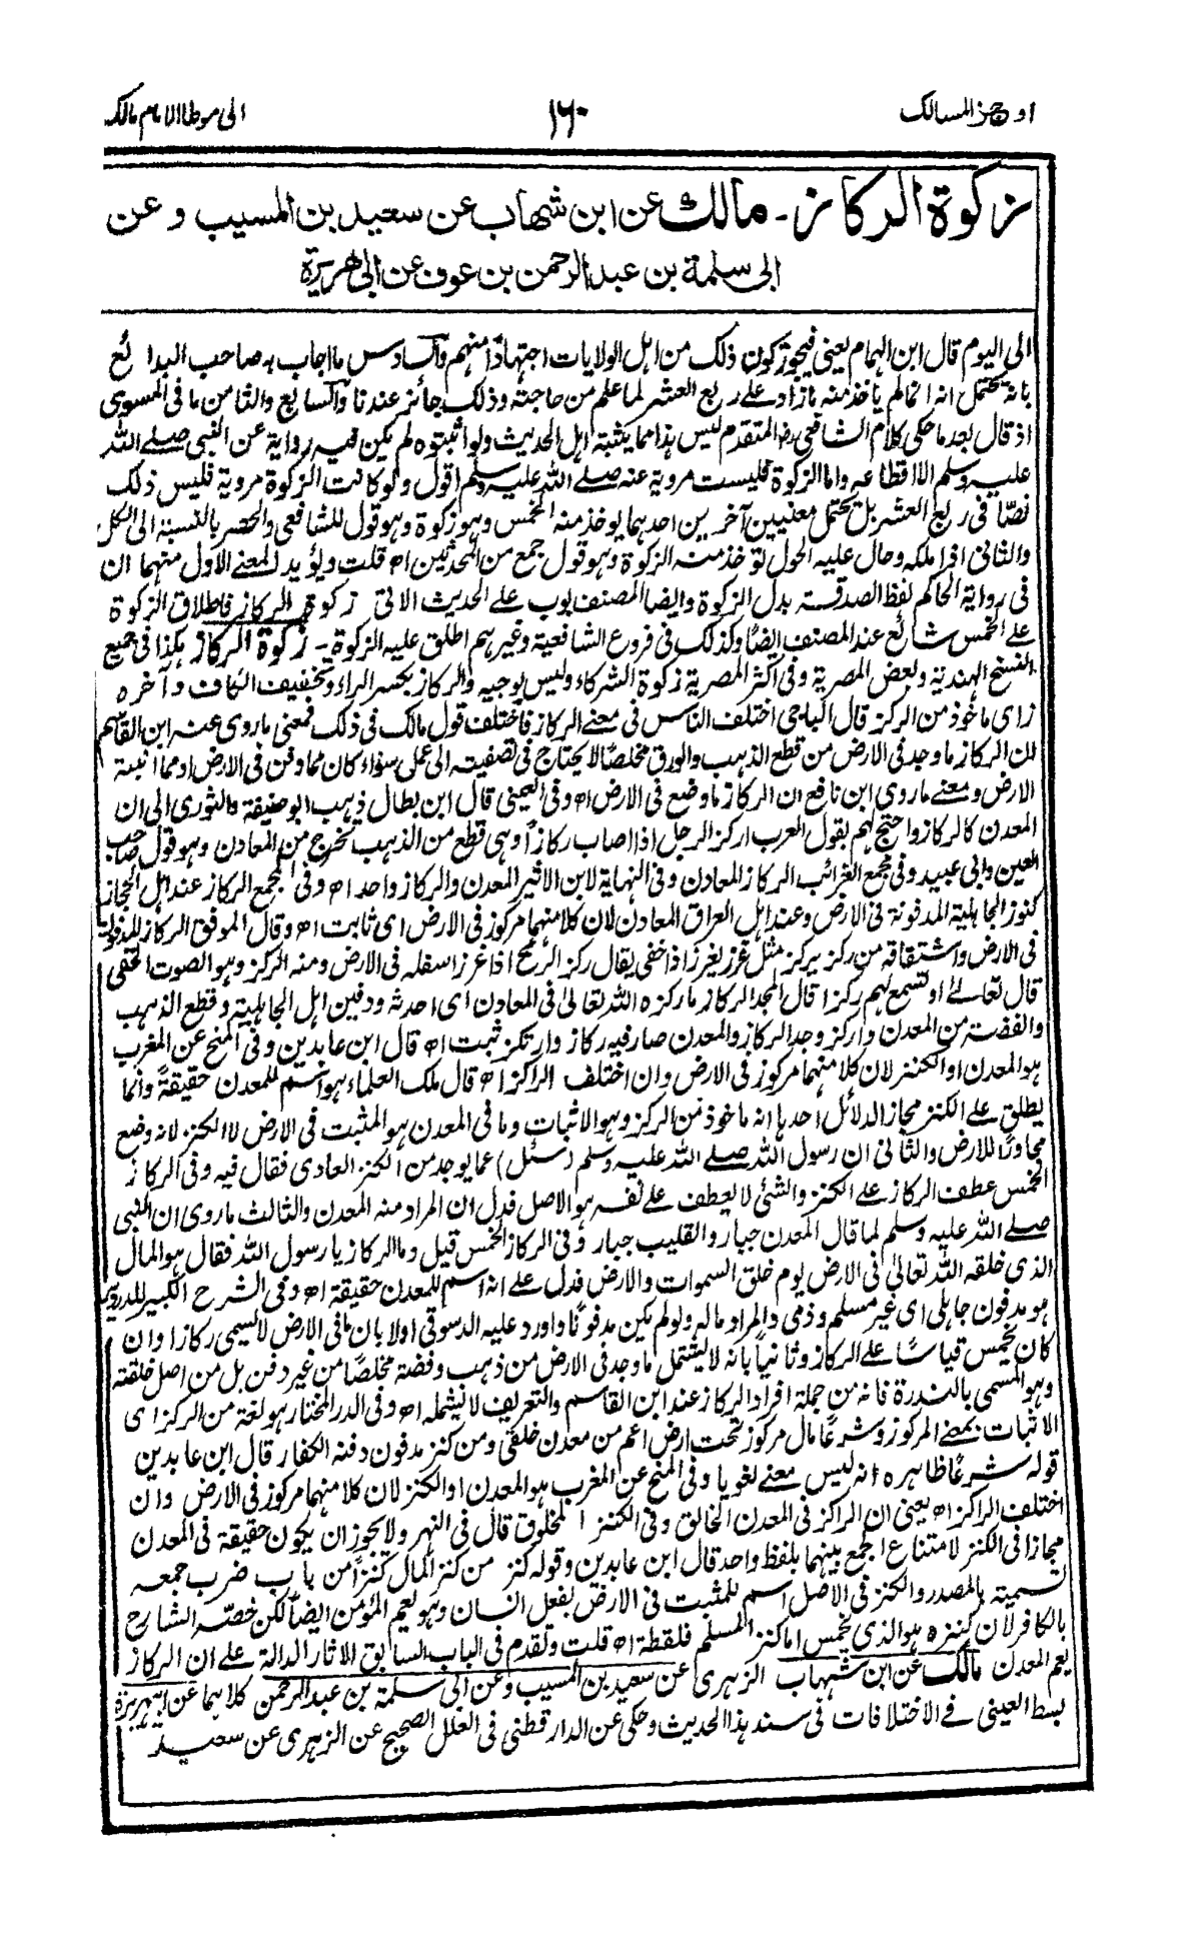 اوجز المسالك
١٦٠
الى موطا الامام مالك
زكوة الركاز - مالك عن ابن شهاب عن سعيد بن المسيب وعن
ابى سلمة بن عبد الرحمن بن عوف عن ابى هريرة
الى اليوم قال ابن الهمام يعنى فيجوز كون ذلك من اهل الولايات اجتهادا منهم والسادس ما اجاب به صاحب البدائع
بانه يحتمل انه انما لم ياخذ منه ما زاد على ربع العشر لما علم من حاجته وذلك جائز عندنا والسابع والثامن ما فى المسوى
اذ قال بعد ما حكى كلام الشافعى رض المتقدم ليس هذا مما يثبته اهل الحديث ولو اثبتوه لم يكن فيه رواية عن النبى صلے الله
عليه وسلم الا اقطاعه واما الزكوة فليست مروية عنه صلے الله عليه وسلم اقول ولو كانت الزكوة مروية فليس ذلك
نصا فى ربع العشر بل يحتمل معنيين آخرين احدهما يوخذ منه الخمس وهو زكوة وهو قول للشافعى والحصر بالنسبة الى الكل
والثانى اذا ملكه وحال عليه الحول توخذ منه الزكوة وهو قول جمع من المحدثين اه قلت ويؤيد المعنے الاول منهما ان
فى رواية الحاكم لفظ الصدقة بدل الزكوة وايضا المصنف بوب على الحديث الاتى زكوة الركاز فاطلاق الزكوة
على الخمس شائع عند المصنف ايضا وكذلك فى فروع الشافعية وغيرهم اطلق عليه الزكوة - زكوة الركاز هكذا فى جميع
النسخ الهندية وبعض المصرية وفى اكثر المصرية زكوة الشركاء وليس بوجيه والركاز بكسر الراء وتخفيف الكاف وآخره
زاى ماخوذ من الركز قال الباجى اختلف الناس فى معنے الركاز فاختلف قول مالك فى ذلك فمعنى ما روى عنه ابن القاسم
ان الركاز ما وجد فى الارض من قطع الذهب والورق مخلصا لا يحتاج فى تصفيته الى عمل سواء كان مما دفن فى الارض او مما انبته
الارض ومعنے ما روى ابن نافع ان الركاز ما وضع فى الارض اه وفى العينى قال ابن بطال ذهب ابو حنيفة والثورى الى ان
المعدن كالركاز واحتج لهم بقول العرب اركز الرجل اذا اصاب ركازا وهى قطع من الذهب تخرج من المعادن وهو قول صاحب
العين وابى عبيد وفى مجمع الغرائب الركاز المعادن وفى النهاية لابن الاثير المعدن والركاز واحد اه وفى المجمع الركاز عند اهل الحجاز
كنوز الجاهلية المدفونة فى الارض وعند اهل العراق المعادن لان كلا منهما مركوز فى الارض اى ثابت اه وقال الموفق الركاز المدفون
فى الارض واشتقاقه من ركز يركز مثل غرز يغرز اذا خفى يقال ركز الرمح اذا غرز اسفله فى الارض ومنه الركز وهو الصوت الخفى
قال تعالےٰ او تسمع لهم ركزا قال المجد الركاز ما ركزه الله تعالىٰ فى المعادن اى احدثه ودفين اهل الجاهلية وقطع الذهب
والفضة من المعدن واركز وجد الركاز والمعدن صار فيه ركاز وارتكز ثبت اه قال ابن عابدين وفى المنح عن المغرب
هو المعدن او الكنز لان كلا منهما مركوز فى الارض وان اختلف الراكز اه قال ملك العلماء هو اسم للمعدن حقيقة وانما
يطلق على الكنز مجازا لدلائل احدها انه ماخوذ من الركز وهو الاثبات وما فى المعدن هو المثبت فى الارض لا الكنز لانه وضع
مجاورا للارض والثانى ان رسول الله صلے الله عليه وسلم (سئل) عما يوجد من الكنز العادى فقال فيه وفى الركاز
الخمس عطف الركاز على الكنز والشئ لا يعطف على نفسه هو الاصل فدل ان المراد منه المعدن والثالث ما روى ان النبى
صلے الله عليه وسلم لما قال المعدن جبار والقليب جبار وفى الركاز الخمس قيل وما الركاز يا رسول الله فقال هو المال
الذى خلقه الله تعالىٰ فى الارض يوم خلق السموات والارض فدل على انه اسم للمعدن حقيقة اه وفى الشرح الكبير للدردير
هو مدفون جاهلى اى غير مسلم وذمى والمراد ماله ولو لم يكن مدفونا واورد عليه الدسوقى اولا بان ما فى الارض لا يسمى ركازا وان
كان يخمس قياسا على الركاز وثانيا بانه لا يشتمل ما وجد فى الارض من ذهب وفضة مخلصا من غير دفن بل من اصل خلقته
وهو المسمى بالندرة فانه من جملة افراد الركاز عند ابن القاسم والتعريف لا يشمله اه وفى الدر المختار هو لغة من الركز اى
الاثبات بمعنے المركوز وشرعا مال مركوز تحت ارض اعم من معدن خلقى ومن كنز مدفون دفنه الكفار قال ابن عابدين
قوله شرعا ظاهره انه ليس معنے لغويا وفى المنح عن المغرب هو المعدن او الكنز لان كلا منهما مركوز فى الارض وان
اختلف الراكز اه يعنى ان الراكز فى المعدن الخالق وفى الكنز المخلوق قال فى النهر ولا يجوز ان يكون حقيقة فى المعدن
مجازا فى الكنز لامتناع الجمع بينهما بلفظ واحد قال ابن عابدين وقوله كنز من كنز المال كنزا من باب ضرب جمعه
تسمية بالمصدر والكنز فى الاصل اسم للمثبت فى الارض بفعل انسان وهو يعم المؤمن ايضا لكن خصه الشارح
بالكافر لان كنزه هو الذى يخمس اما كنز المسلم فلقطة اه قلت وتقدم فى الباب السابق الاثار الدالة على ان الركاز
يعم المعدن مالك عن ابن شهاب الزهرى عن سعيد بن المسيب وعن ابى سلمة بن عبد الرحمن كلاهما عن ابى هريرة
بسط العينى فے الاختلافات فى سند هذا الحديث وحكى عن الدارقطنى فى العلل الصحيح عن الزهرى عن سعيد